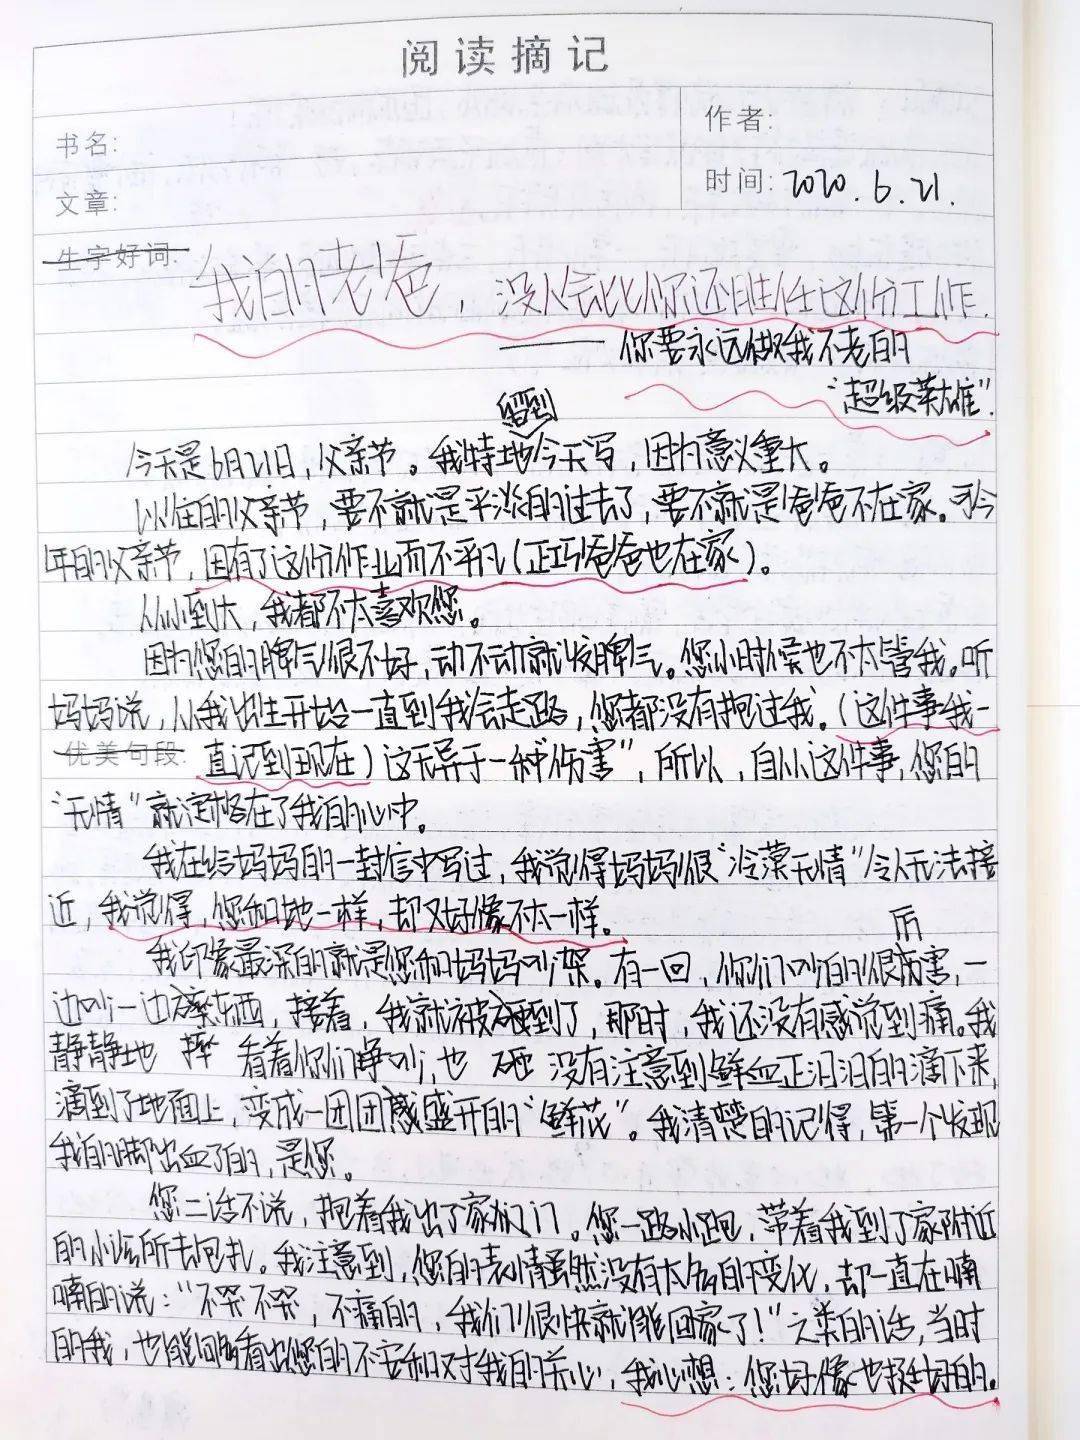 阅读摘记
书名:
作者:
文章:
时间: 2020.6.21.
生字好词:
我的老爸，没人会比你还胜任这份工作.
——你要永远做我不老的
“超级英雄”.
留到
今天是6月21日，父亲节。我特地今天写，因为意义重大。
以往的父亲节，要不就是平淡的过去了，要不就是爸爸不在家。可今
年的父亲节，因有了这份作业而不平凡(正巧爸爸也在家)。
从小到大，我都不太喜欢您。
因为您的脾气很不好，动不动就发脾气。您小时候也不太管我。听
妈妈说，从我出生开始一直到我会走路，您都没有抱过我。(这件事我一
优美句段:
直记到现在)这无异于一种“伤害”，所以，自从这件事，您的
“无情”就定格在了我的心中。
我在给妈妈的一封信中写过，我觉得妈妈很“冷漠无情”令人无法接
近，我觉得，您和她一样，却又好像不太一样。
厉
我印象最深的就是您和妈妈吵架。有一回，你们吵的很害，一
边吵一边东西，接着，我就被到了，那时，我还没有感觉到痛。我
静静地 摔 看着你们争吵，也 砸 没有注意到鲜血正汩汩的滴下来，
滴到了地面上，变成一团团盛开的“鲜花”。我清楚的记得，第一个发现
我的脚出血了的，是您。
您二话不说，抱着我出了家门。您一路小跑，带着我到了家附近
的小诊所去包扎。我注意到，您的表情虽然没有太多的变化，却一直在喃
喃的说：“不哭不哭，不痛的，我们很快就能回家了！”之类的话，当时
的我，也能看出您的不安和对我的关心，我心想：您好像也挺好的。